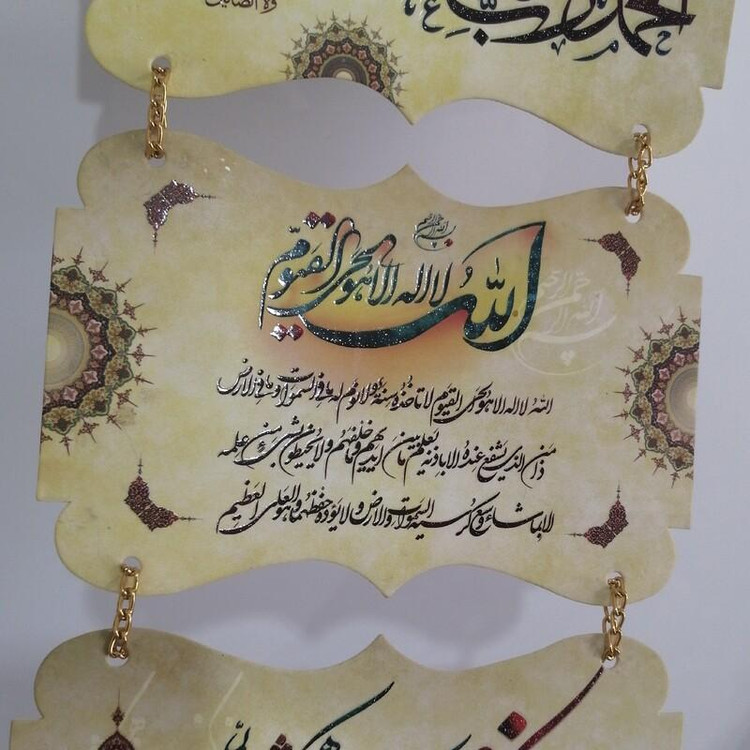 ولا الضالين
بسم الله الرحمن الرحیم
الله لا اله الا هو الحی القیوم
بسم الله الرحمن الرحیم
الله لا اله الا هو الحی القیوم لا تاخذه سنة ولا نوم له ما فی السموات و ما فی الارض
من ذا الذی یشفع عنده الا باذنه یعلم ما بین ایدیهم و ما خلفهم ولا یحیطون بشی من علمه
الا بما شاء وسع کرسیه السموات والارض ولا یؤده حفظهما وهو العلی العظیم